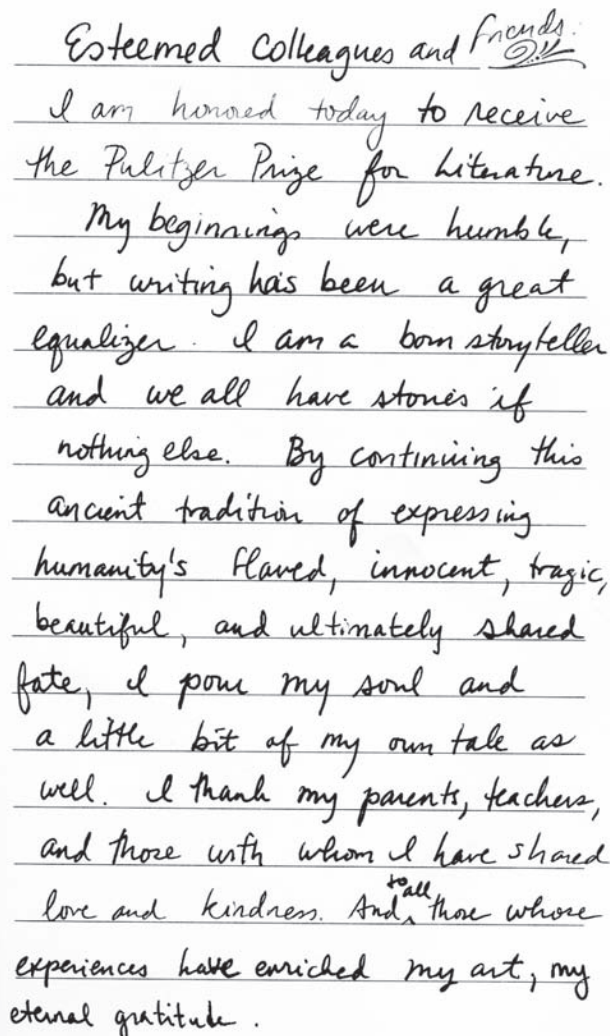 Esteemed Colleagues and Friends.
I am honored today to receive
the Pulitzer Prize for Literature.
My beginnings were humble,
but writing has been a great
equalizer. I am a born storyteller
and we all have stories if
nothing else. By continuing this
ancient tradition of expressing
humanity's flawed, innocent, tragic,
beautiful, and ultimately shared
fate, I pour my soul and
a little bit of my own tale as
well. I thank my parents, teachers,
and those with whom I have shared
love and kindness. And to all those whose
experiences have enriched my art, my
eternal gratitude.